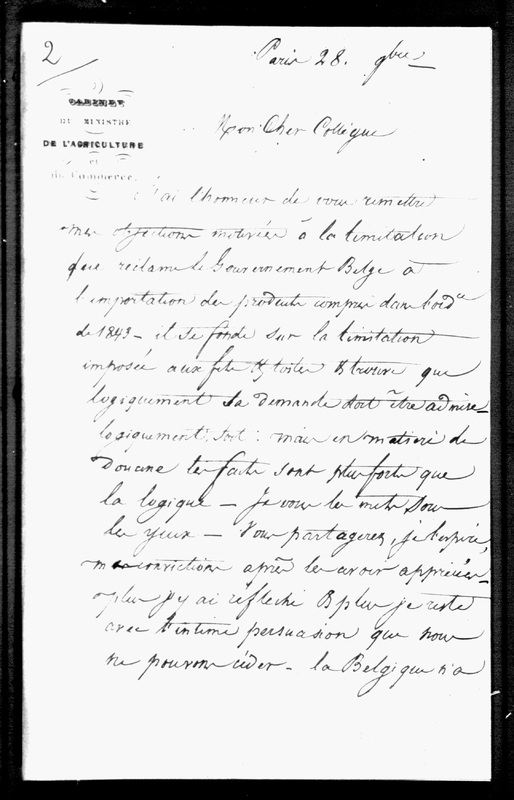 2
Paris 28. 9bre
CABINET
DU MINISTRE
DE L'AGRICULTURE
et
du Commerce.
Mon Cher Collègue
J'ai l'honneur de vous remettre
mes objections motivées à la limitation
que réclame le Gouvernement Belge à
l'importation des produits compris dans l'ord.ce
de 1843 - il se fonde sur la limitation
imposée aux fils & toiles & trouve que
logiquement sa demande doit être admise -
logiquement soit : mais en matière de
Douane les faits sont plus forts que
la logique - Je vous les mets sous
les yeux - Vous partagerez, je l'espère,
ma conviction après les avoir appréciés -
plus j'y ai réfléchi & plus je reste
avec l'intime persuasion que nous
ne pouvons céder - la Belgique n'a